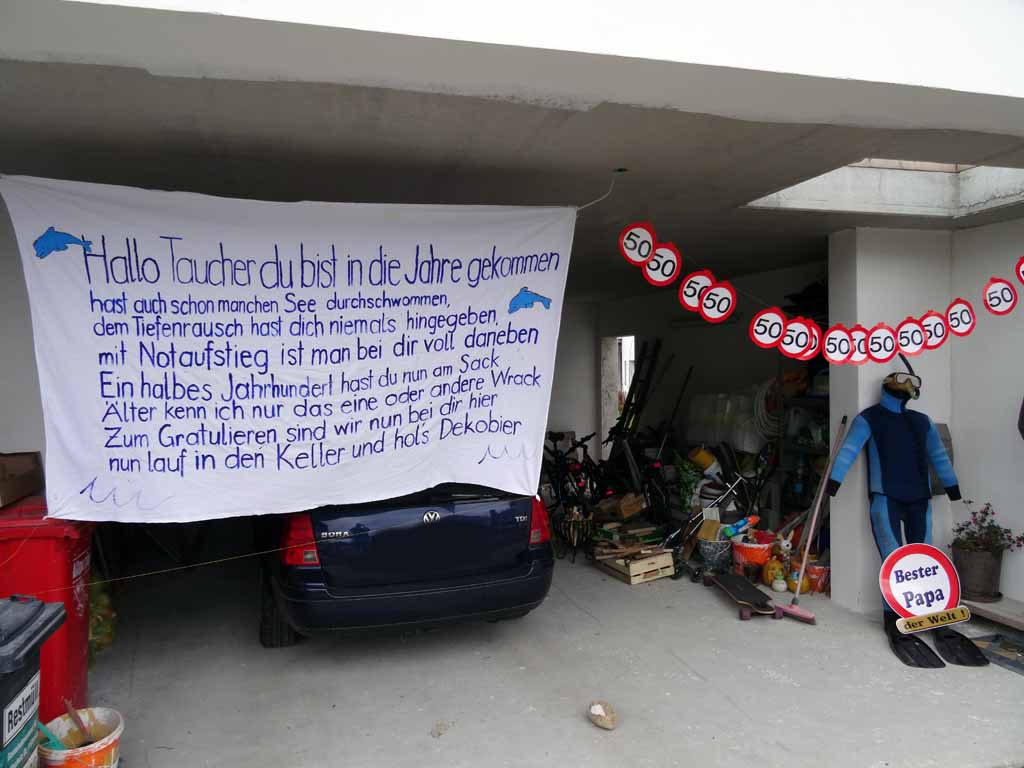 Hallo Taucher du bist in die Jahre gekommen
hast auch schon manchen See durchschwommen,
dem Tiefenrausch hast dich niemals hingegeben,
mit Notaufstieg ist man bei dir voll daneben
Ein halbes Jahrhundert hast du nun am Sack
Älter kenn ich nur das eine oder andere Wrack
Zum Gratulieren sind wir nun bei dir hier
nun lauf in den Keller und hol's Dekobier
50
50
50
50
50
50
50
50
50
50
50
50
50
BORA
TDI
Bester
Papa
der Welt !
Restmüll